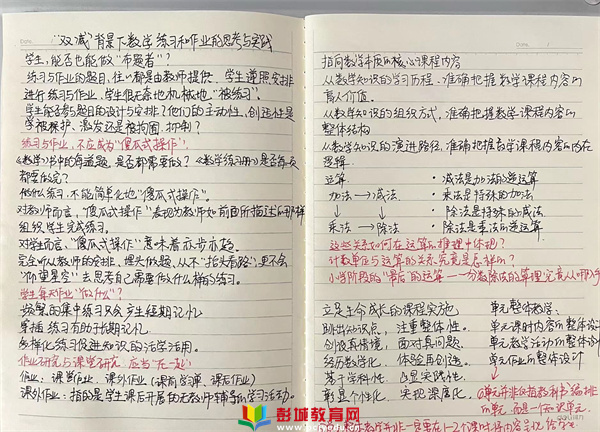 "双减"背景下数学练习和作业的思考与实践
学生,能否也能做"布题者"?
练习与作业的题目,往往都是由教师提供,学生遵照安排
进行练习与作业,学生很无奈地机械地"被练习"。
学生能否参与题目的设计与安排?他们的主动性、创造性是
学被保护、激发还是被拘囿、抑制?
练习与作业,不应成为"傻瓜式操作"
《数学》书中的每道题,是否都需要做?《数学练习册》是否每页
都要做完?
做什么练习,不能简单化地"傻瓜式操作"。
对教师而言,"傻瓜式操作"表现为教师如前面所描述的那样
组织学生完成练习。
对学生而言,"傻瓜式操作"意味着亦步亦趋。
完全听从教师的安排、埋头做题,从不"抬头看路",更不会
"仰望星空"去思考自己需要做什么样的练习。
学生每天作业"做什么"?
频繁的集中练习只会产生短期记忆
穿插练习有助于长期记忆
多样化练习促进知识的活学活用。
作业研究与课堂研究,应当"在一起"
作业:课堂作业、课外作业(课前学习单、课后作业)
课外作业:指的是学生课后开展的无教师辅导的学习活动。
指向数学本质的核心课程内容
从数学知识的学习历程,准确把握数学课程内容的
育人价值。
从数学知识的组织方式,准确把握数学课程内容的
整体结构
从数学知识的演进路径,准确把握数学课程内容的内在
逻辑。
运算 · 减法是加法的逆运算
加法 → 减法 · 乘法是特殊的加法
↓ ↓ · 除法是特殊的减法
乘法 → 除法 · 除法是乘法的逆运算
这些关系如何在运算的推理中体现?
计数单位与运算的关系究竟是怎样的?
小学阶段的"最后"的运算——分数除法的算理究竟从何
立足生命成长的课程实施 单元整体教学:
跳出知识点,注重整体性。 单元课时内容的整体设计
创设真情境,面对真问题、 单元教学活动的整体设计
经历数学化,体验再创造。 单元作业的整体设计
基于学科性,凸显实践性。 ↓
彰显个性化,实现深度化。 (单元并非仅指教科书编排
的单元,而是一个知识单元,
教学并非一定要在1-2个课时将内容
彭城教育网